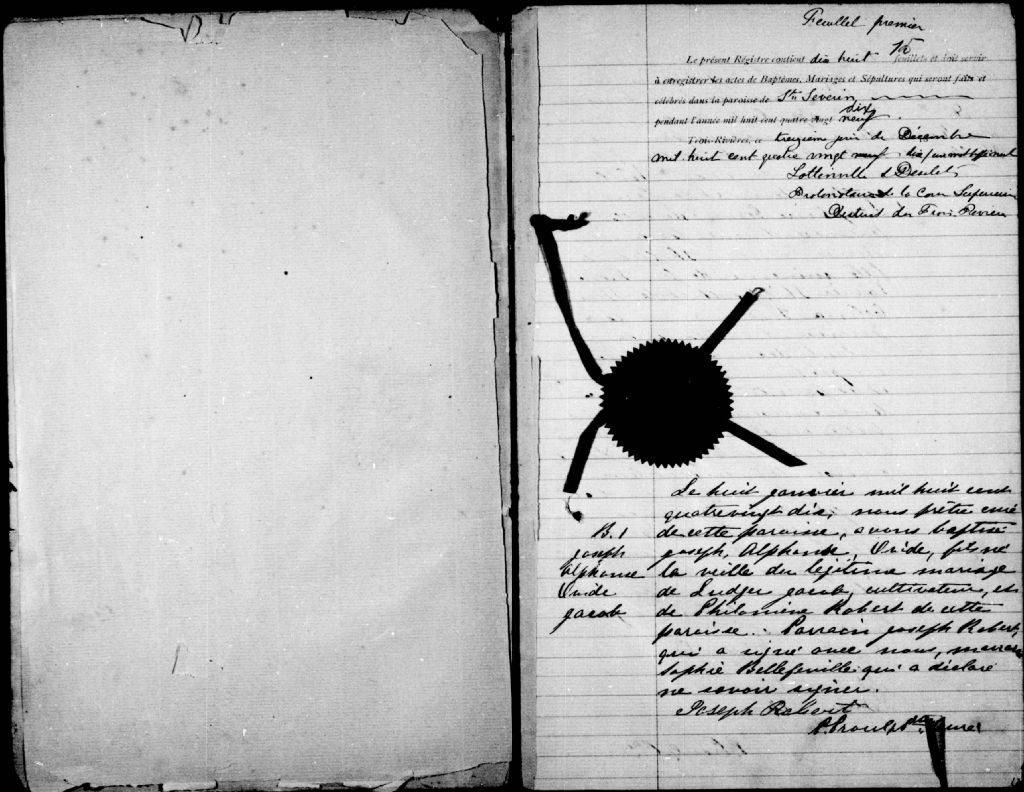 Feuillet premier
Le présent Régistre contient dix huit 18 feuillets et doit servir
à enregistrer les actes de Baptêmes, Mariages et Sépultures qui seront faits et
célébrés dans la paroisse de Ste Severin
pendant l'année mil huit cent quatre vingt dix neuf.
Trois-Rivières, ce treizieme jour de Décembre
mil huit cent quatre vingt neuf
Lottinville & Desilets
Protonotaires de la Cour Superieure
District des Trois Rivieres
Le huit janvier mil huit cent
quatrevingt dix, nous prêtre curé
B. 1 de cette paroisse, avons baptisé
joseph joseph, Alphonse, Ovide, fils né
Alphonse la veille du légitime mariage
Ovide de Ludger jacob, cultivateur, et
jacob de Philomène Robert de cette
paroisse. Parrain joseph Robert,
qui a signé avec nous, marraine
Sophie Bellefeuille qui a déclaré
ne savoir signer.
Joseph Robert
Proulx Ptre Curé